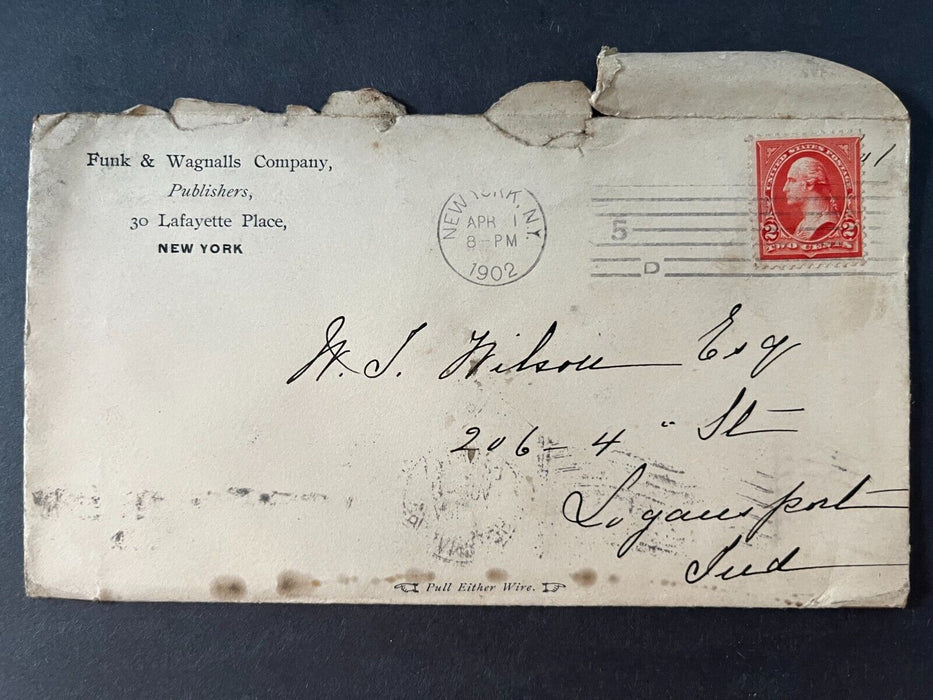 Funk & Wagnalls Company,
Publishers,
30 Lafayette Place,
NEW YORK
NEW YORK, N.Y.
APR 1
8-PM
1902
5
D
UNITED STATES POSTAGE
2 2
TWO CENTS
W. T. Wilson Esq
206 - 4" St
Logansport
Ind
Pull Either Wire.